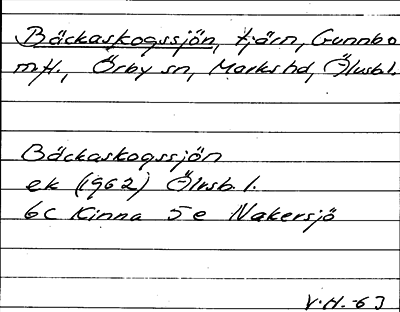 Bäckaskogssjön, tjärn, Gunnbo
mfl., Örby sn, Marks hd, Älvsb.l.
Bäckaskogssjön
ek (1962) Älvsb. l.
6C Kinna 5e Nakersjö
V.H. -63